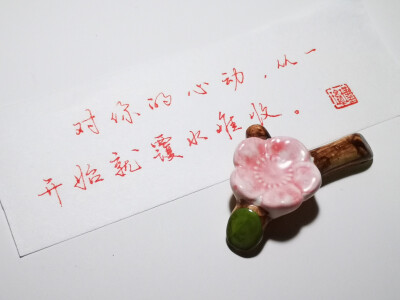 对你的心动，从一
开始就覆水难收。